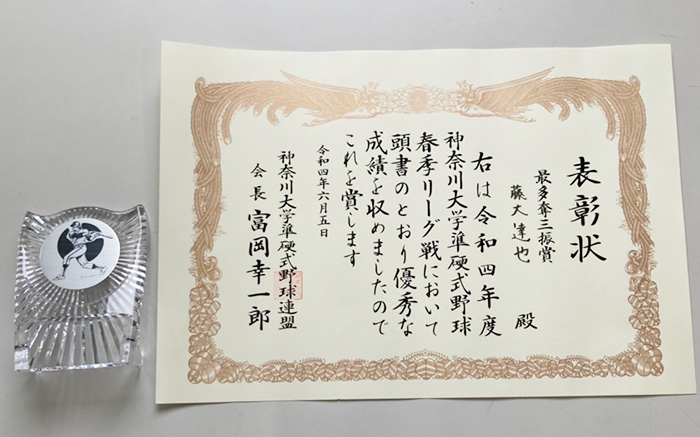 表彰状
最多奪三振賞
藤大達也 殿
右は令和四年度
神奈川大学準硬式野球
春季リーグ戦において
頭書のとおり優秀な
成績を収めましたので
これを賞します
令和四年六月五日
神奈川大学準硬式野球連盟
会長 富岡幸一郎